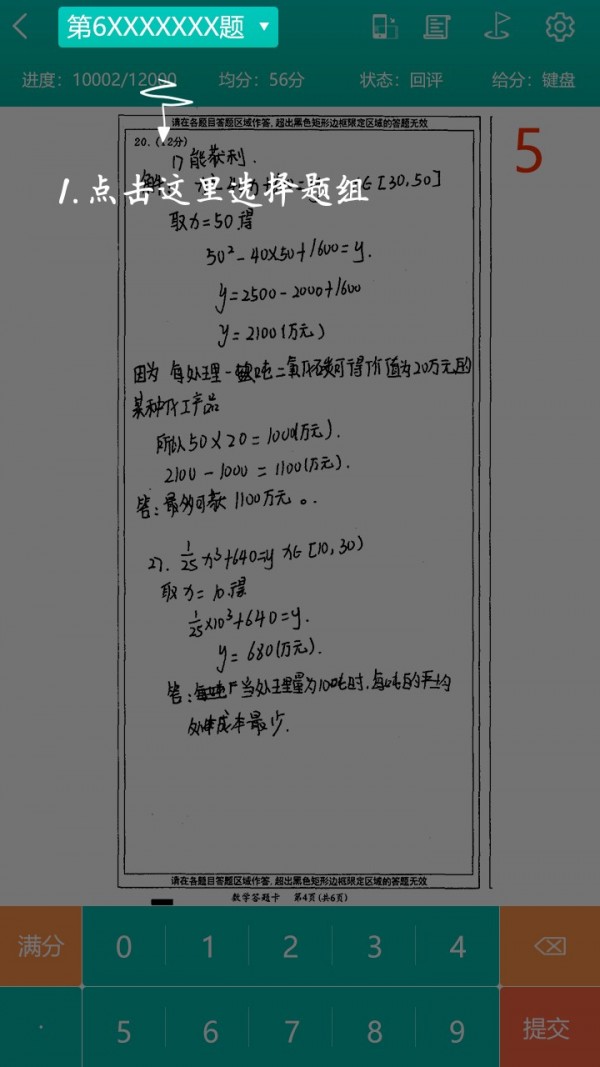 第6XXXXXXX题
进度：10002/12000 均分：56分 状态：回评 给分：键盘
请在各题目答题区域作答，超出黑色矩形边框限定区域的答题无效
5
20.（12分）
1.点击这里选择题组
∈[30,50]
取x=50得
50²-40×50+1600=y.
y=2500-2000+1600
y=2100(万元)
因为每处理一吨二氧化碳可得价值为20万元的
某种化工产品
所以50×20=1000(万元).
2100-1000=1100(万元).
答：最多可获1100万元。
1/25 x³+640=y x∈[10,30)
取x=10.得
1/25×10³+640=y.
y=680(万元).
答：当处理量为100吨时.每吨的平均
成本最少.
请在各题目答题区域作答，超出黑色矩形边框限定区域的答题无效
数学答题卡 第4页(共6页)
满分 0 1 2 3 4
· 5 6 7 8 9 提交